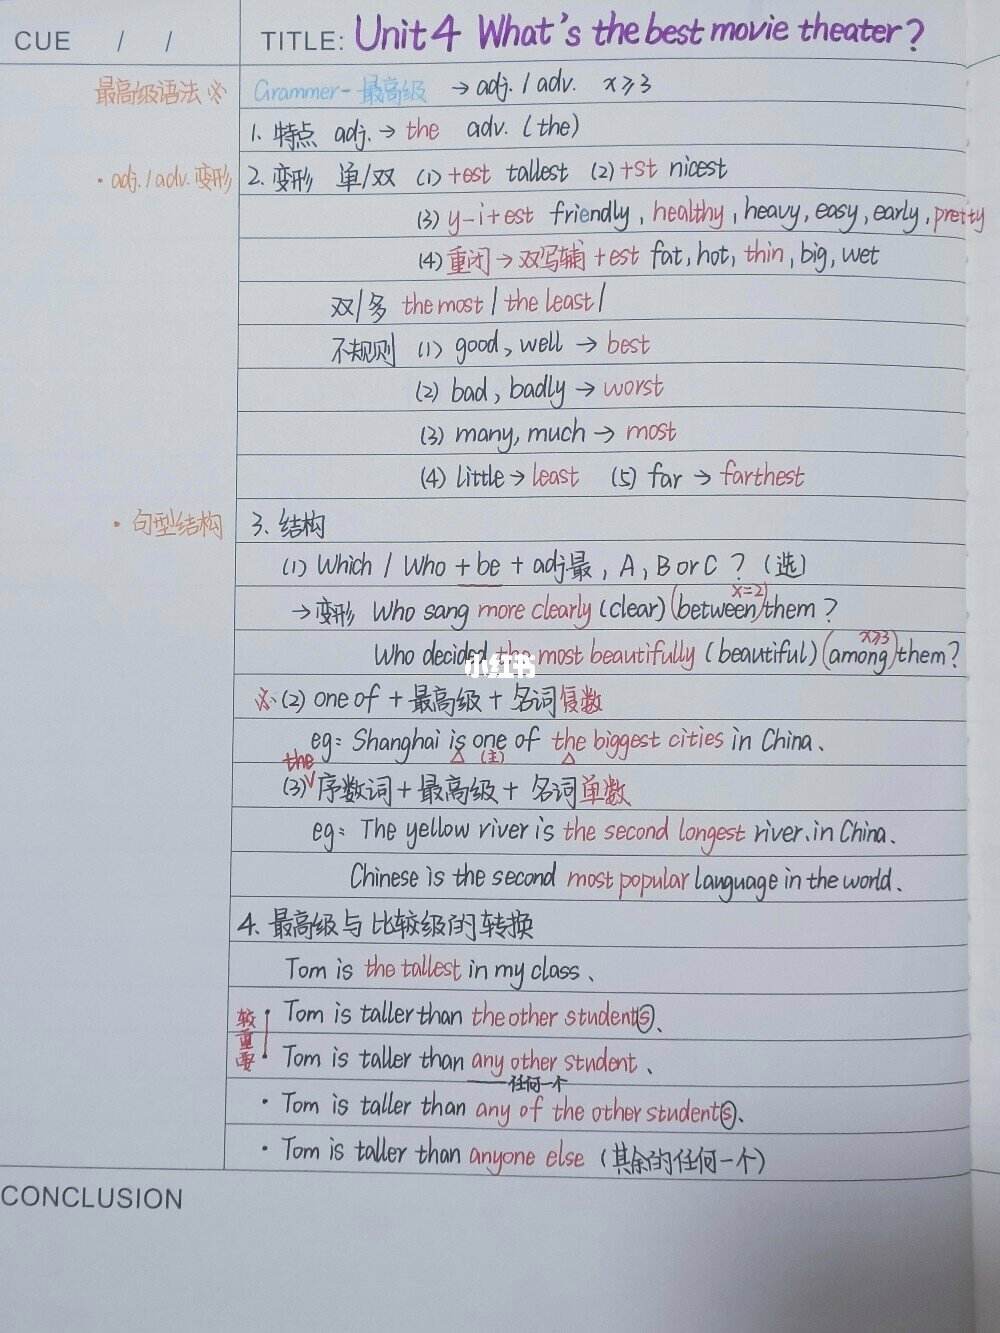 CUE / /
TITLE: Unit 4 What's the best movie theater?
最高级语法 ※
Grammer- 最高级 → adj. / adv. x≥3
1. 特点 adj. → the adv. (the)
· adj. / adv. 变形
2. 变形 单/双 (1) +est tallest (2) +st nicest
(3) y-i+est friendly, healthy, heavy, easy, early, pretty
(4) 重闭 → 双写辅 +est fat, hot, thin, big, wet
双/多 the most / the least /
不规则 (1) good, well → best
(2) bad, badly → worst
(3) many, much → most
(4) little → least (5) far → farthest
· 句型结构
3. 结构
(1) Which / Who + be + adj最, A, B or C ? (选)
x=2
→ 变形 Who sang more clearly (clear) (between) them ?
x≥3
Who decided the most beautifully (beautiful) (among) them ?
小红书
※ (2) one of + 最高级 + 名词复数
eg: Shanghai is one of the biggest cities in China.
△ (主) △
the
(3) 序数词 + 最高级 + 名词单数
eg: The yellow river is the second longest river. in China.
Chinese is the second most popular language in the world.
4. 最高级与比较级的转换
Tom is the tallest in my class.
较重要
· Tom is taller than the other students.
· Tom is taller than any other student.
任何一个
· Tom is taller than any of the other students.
· Tom is taller than anyone else (其余的任何一个)
CONCLUSION